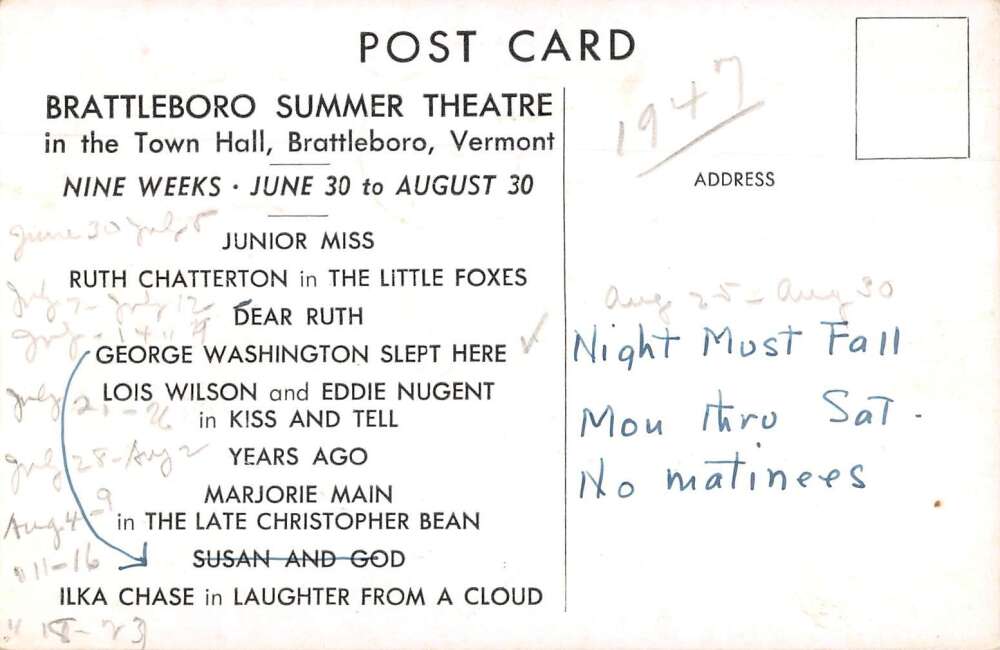 POST CARD
BRATTLEBORO SUMMER THEATRE
in the Town Hall, Brattleboro, Vermont
NINE WEEKS · JUNE 30 to AUGUST 30
June 30 July 5
JUNIOR MISS
RUTH CHATTERTON in THE LITTLE FOXES
July 7 - July 12
DEAR RUTH
July - 14
GEORGE WASHINGTON SLEPT HERE ✓
LOIS WILSON and EDDIE NUGENT
July 21 - 26
in KISS AND TELL
July 28 - Aug 2
YEARS AGO
MARJORIE MAIN
Aug. 4 - 9
in THE LATE CHRISTOPHER BEAN
SUSAN AND GOD
" 11-16
ILKA CHASE in LAUGHTER FROM A CLOUD
" 18-23
1947
ADDRESS
Aug 25 - Aug 30
Night Must Fall
Mon thru Sat.
No matinees